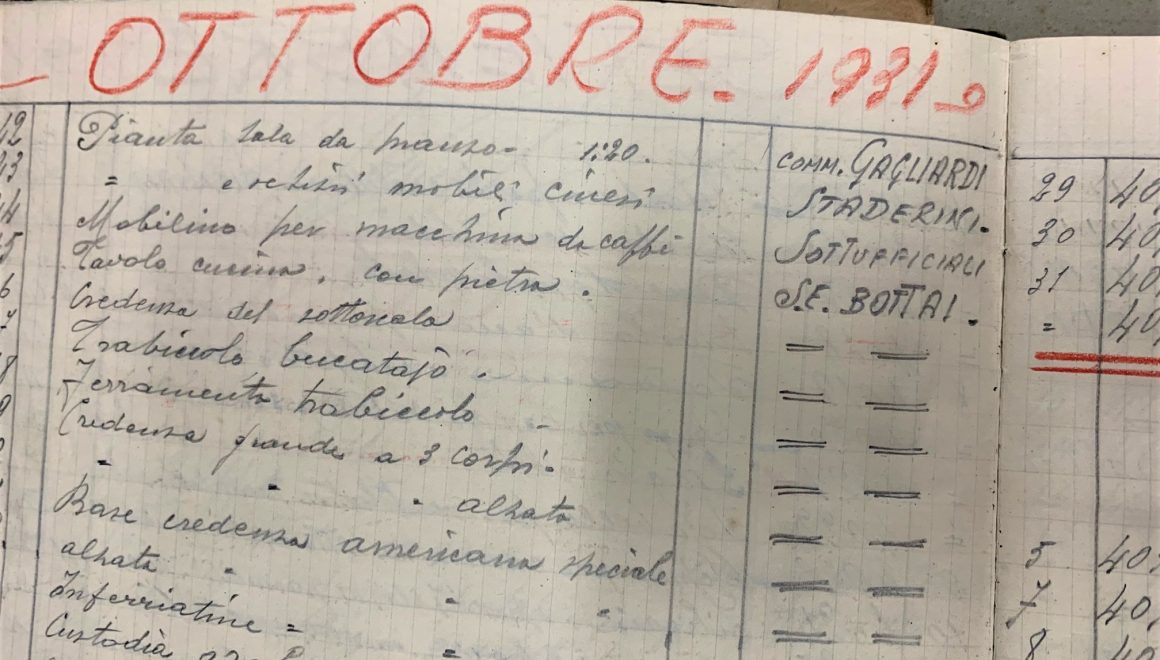 OTTOBRE. 1931
42 Pianta sala da pranzo - 1:20. COMM. GAGLIARDI
43 " e schizzi mobili cinesi STADERINI.
44 Mobilino per macchina da caffè SOTTUFFICIALI
45 Tavolo cucina, con pietra. S.E. BOTTAI.
6 Credenza del sottoscala = =
7 Trabiccolo bucatajo. = =
8 Ferramento trabiccolo = =
9 Credenza grande a 3 corpi. = =
" " " alzata = =
Base credenza americana speciale = =
alzata " " " = =
Inferriatine =
Custodia
29 40,
30 40,
31 40,
= 40,
5 40,
7 40,
8 40,